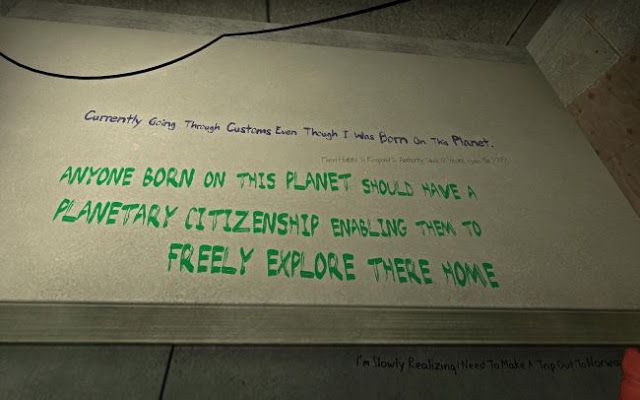 Currently Going Through Customs Even Though I Was Born On This Planet.
ANYONE BORN ON THIS PLANET SHOULD HAVE A
PLANETARY CITIZENSHIP ENABLING THEM TO
FREELY EXPLORE THERE HOME
I'm Slowly Realizing I Need To Make A Trip Out To